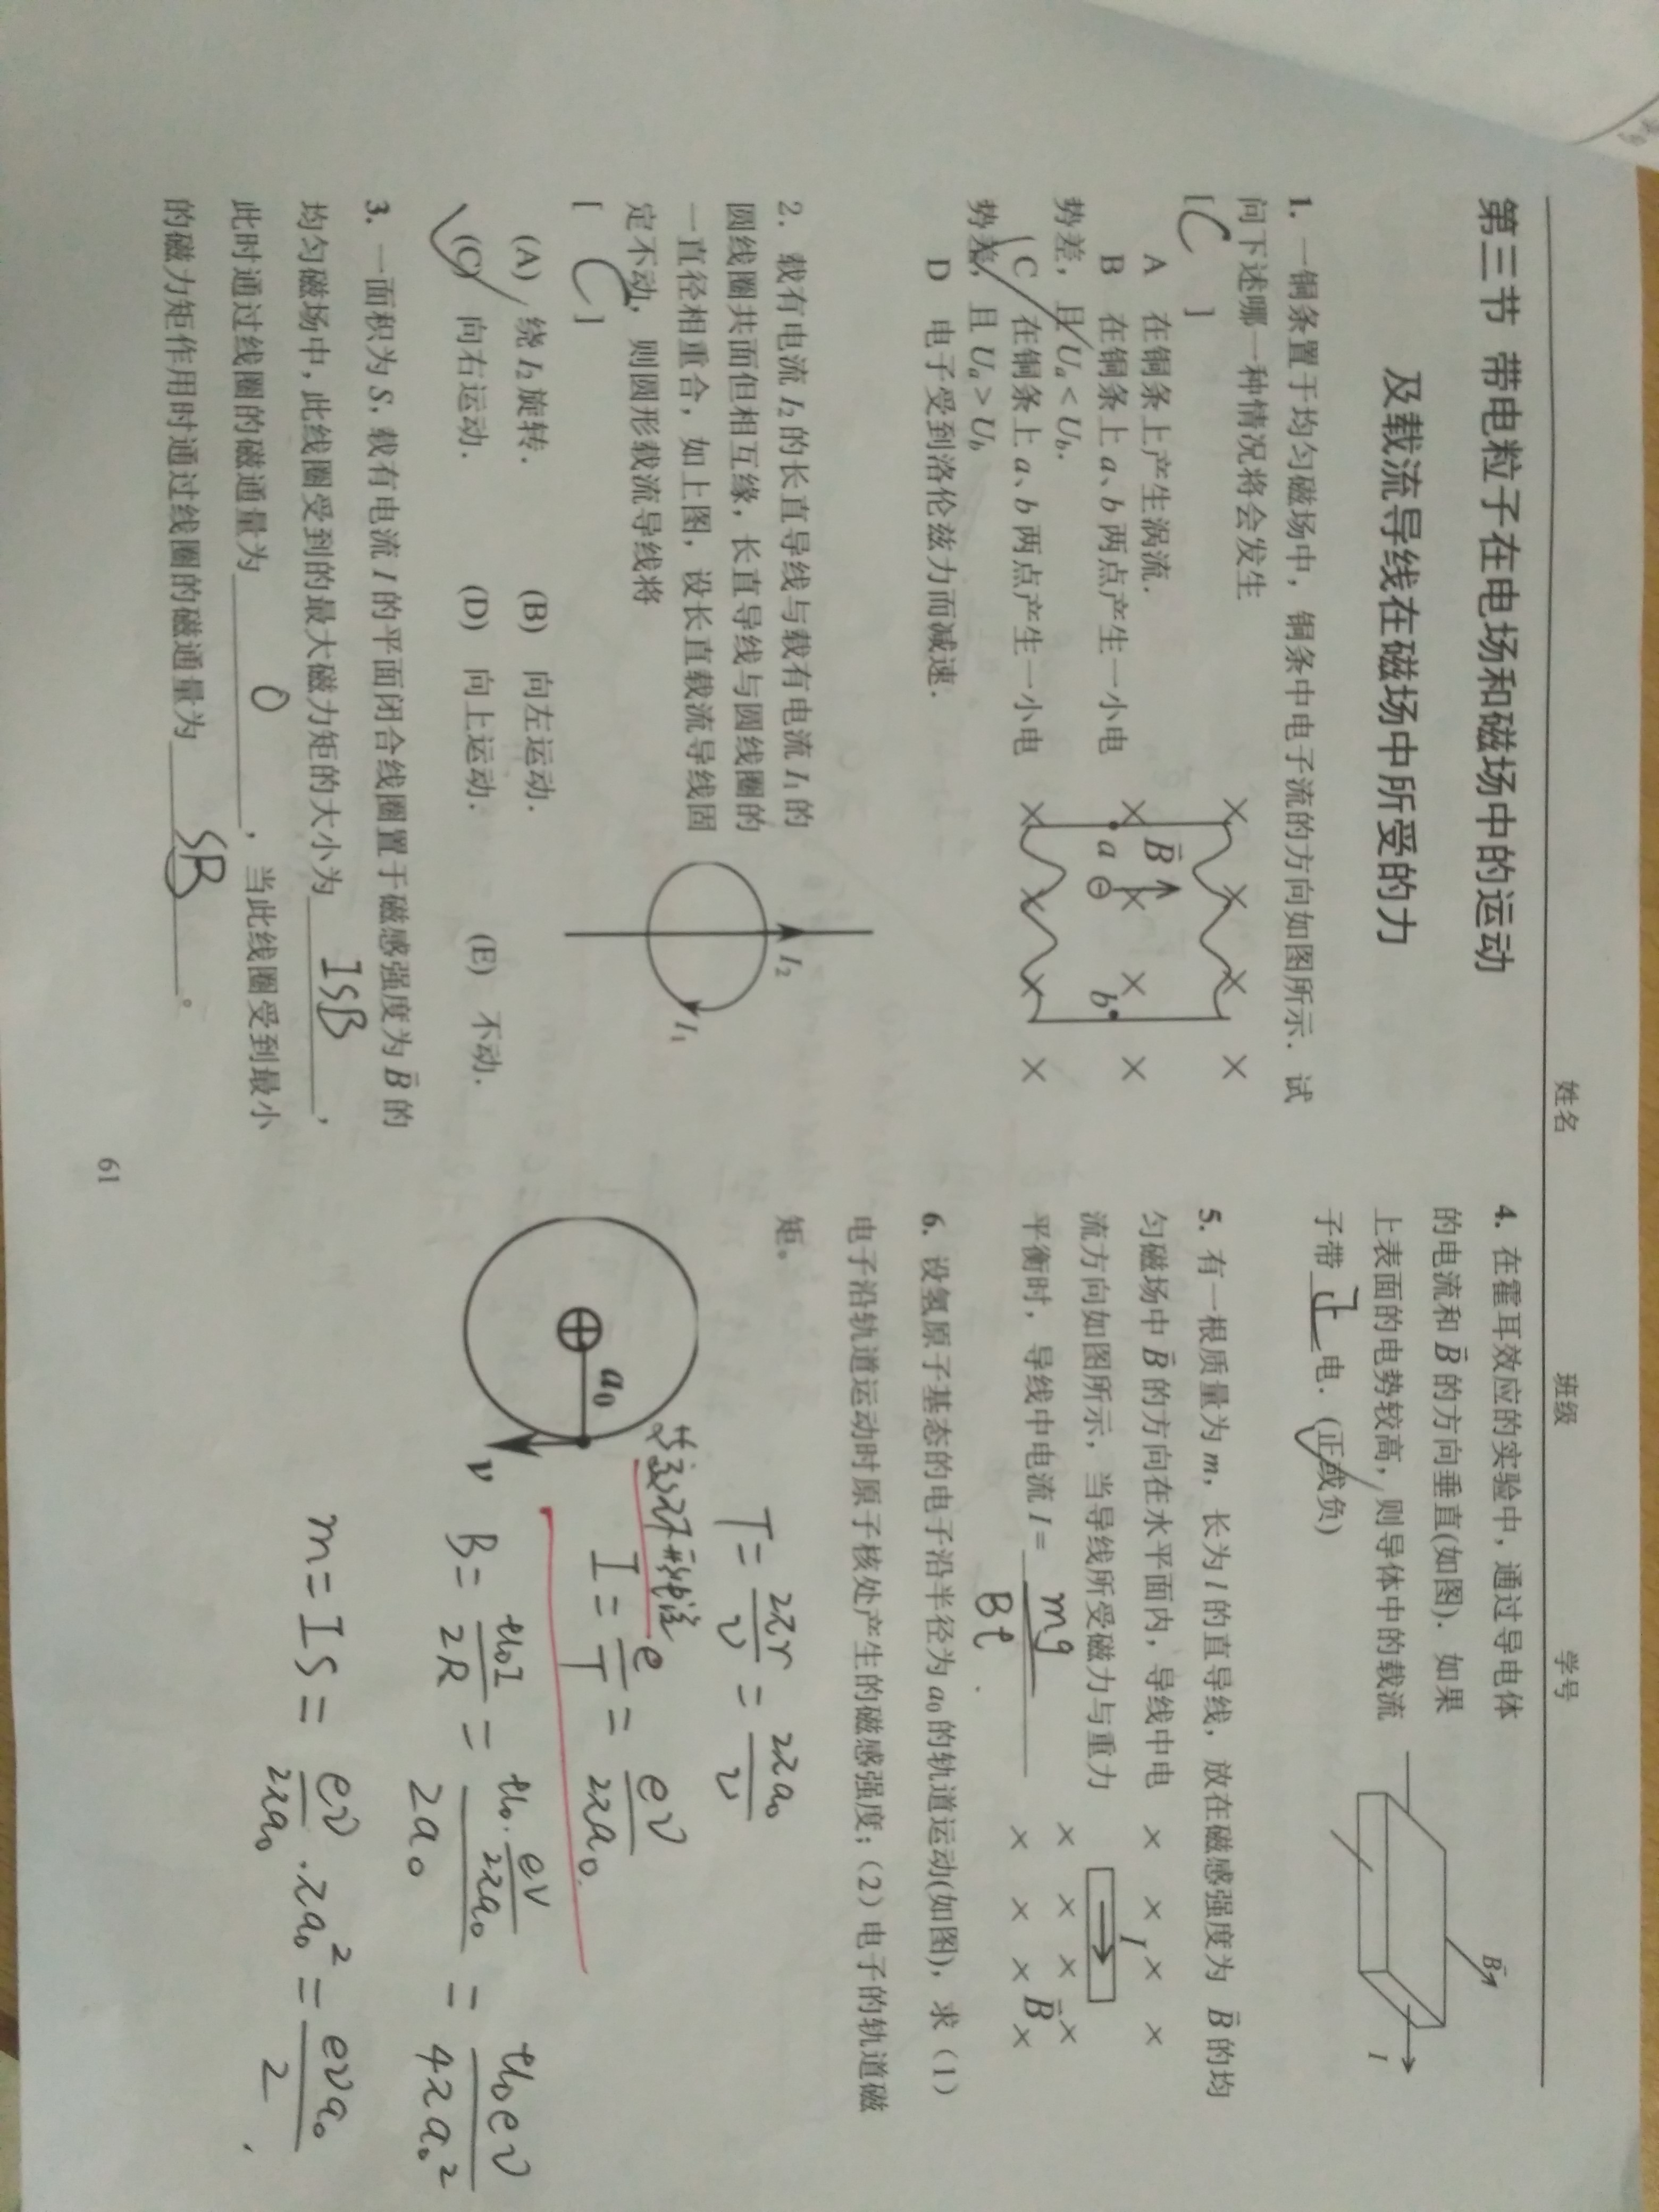 姓名 班级 学号
第三节 带电粒子在电场和磁场中的运动
及载流导线在磁场中所受的力
1. 一铜条置于均匀磁场中，铜条中电子流的方向如图所示．试
问下述哪一种情况将会发生
[ C ]
A 在铜条上产生涡流．
B 在铜条上 a、b 两点产生一小电
势差，且 Ua < Ub．
C 在铜条上 a、b 两点产生一小电
势差，且 Ua > Ub
D 电子受到洛伦兹力而减速．
× × × ×
B
× × × ×
a ⊖ b
× × × ×
2. 载有电流 I₂ 的长直导线与载有电流 I₁ 的
圆线圈共面但相互缘，长直导线与圆线圈的
一直径相重合，如上图，设长直载流导线固
定不动，则圆形载流导线将
[ C ]
(A) 绕 I₂ 旋转． (B) 向左运动．
(C) 向右运动． (D) 向上运动． (E) 不动．
I₂
I₁
3. 一面积为 S，载有电流 I 的平面闭合线圈置于磁感强度为 B 的
均匀磁场中，此线圈受到的最大磁力矩的大小为 ISB ，
此时通过线圈的磁通量为 0 ，当此线圈受到最小
的磁力矩作用时通过线圈的磁通量为 SB 。
61
4. 在霍耳效应的实验中，通过导电体
的电流和 B 的方向垂直(如图)．如果
上表面的电势较高，则导体中的载流
子带 正 电．(正或负)
B
I
5. 有一根质量为 m，长为 l 的直导线，放在磁感强度为 B 的均
匀磁场中 B 的方向在水平面内，导线中电
流方向如图所示，当导线所受磁力与重力
平衡时，导线中电流 I = mg/Bl ．
× × × ×
I
× × ×
B
× × × ×
6. 设氢原子基态的电子沿半径为 a₀ 的轨道运动(如图)，求（1）
电子沿轨道运动时原子核处产生的磁感强度；（2）电子的轨道磁
矩。
a₀
v
T = 2πr/v = 2πa₀/v
I = e/T = ev/2πa₀.
B = u₀I/2R = u₀·ev/2πa₀/2a₀ = u₀ev/4πa₀²
m = IS = ev/2πa₀ · πa₀² = eva₀/2 .